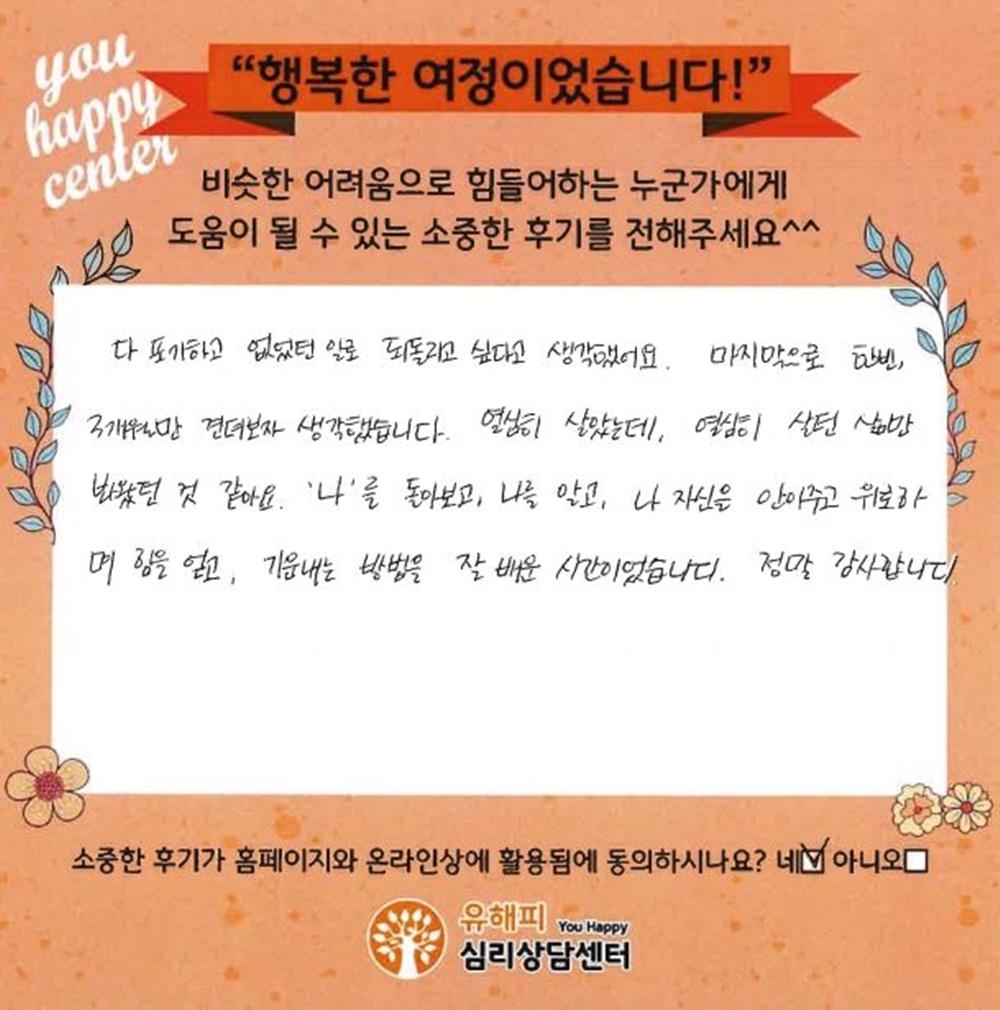 you
happy
center
“행복한 여정이었습니다!”
비슷한 어려움으로 힘들어하는 누군가에게
도움이 될 수 있는 소중한 후기를 전해주세요^^
다 포기하고 없었던 일로 되돌리고 싶다고 생각했어요. 마지막으로 한번,
3개월만 견뎌보자 생각했습니다. 열심히 살았는데, 열심히 살던 삶만
봐왔던 것 같아요. '나'를 돌아보고, 나를 알고, 나 자신을 안아주고 위로하
며 힘을 얻고, 기운내는 방법을 잘 배운 시간이었습니다. 정말 감사합니다.
소중한 후기가 홈페이지와 온라인상에 활용됨에 동의하시나요? 네☑ 아니오☐
유해피 You Happy
심리상담센터